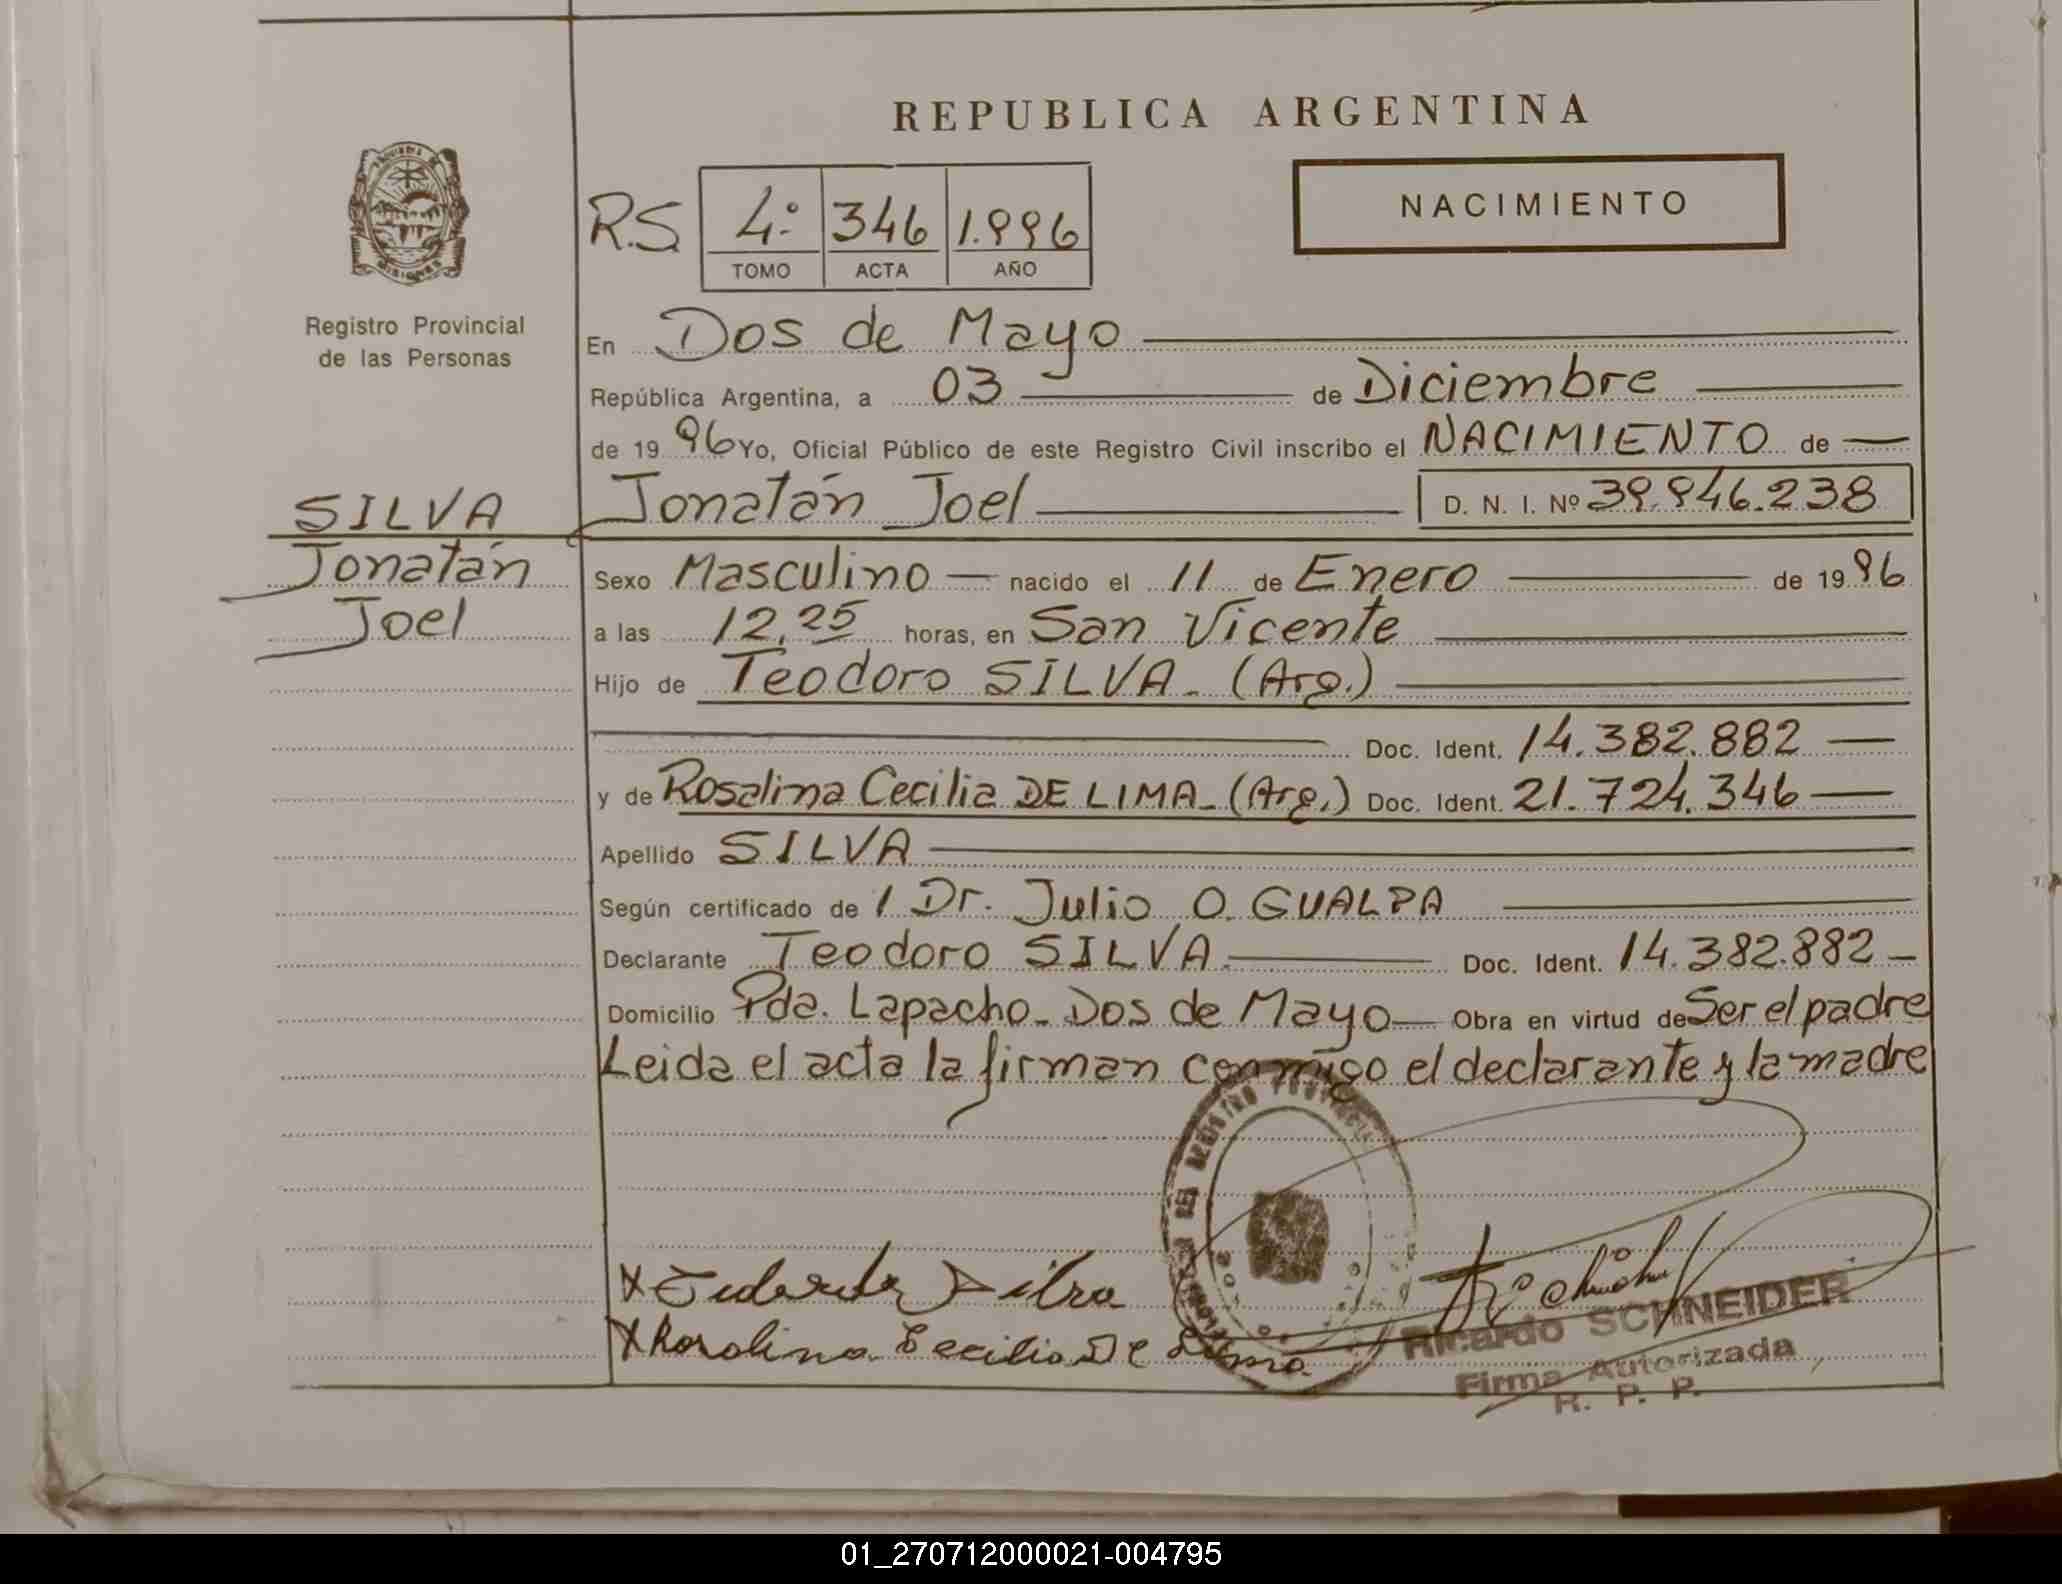 REPUBLICA ARGENTINA
NACIMIENTO
R.S. 4º 346 1.996
TOMO ACTA AÑO
MISIONES
Registro Provincial
de las Personas
En Dos de Mayo
República Argentina, a 03 de Diciembre
de 19 96 Yo, Oficial Público de este Registro Civil inscribo el NACIMIENTO de
SILVA
Jonatán Joel D. N. I. Nº 39.946.238
Jonatán
Joel
Sexo Masculino nacido el 11 de Enero de 19 96
a las 12,25 horas, en San Vicente
Hijo de Teodoro SILVA. (Arg.)
Doc. Ident. 14.382.882
y de Rosalina Cecilia DE LIMA. (Arg.) Doc. Ident. 21.724.346
Apellido SILVA
Según certificado de l Dr. Julio O. GUALPA
Declarante Teodoro SILVA. Doc. Ident. 14.382.882
Domicilio Pda. Lapacho. Dos de Mayo Obra en virtud de Ser el padre
Leida el acta la firman conmigo el declarante y la madre
DEL REGISTRO PROVINCIAL
X Silva
X Rosalina Cecilia De Lima
Ricardo SCHNEIDER
Firma Autorizada
R. P. P.
01_270712000021-004795